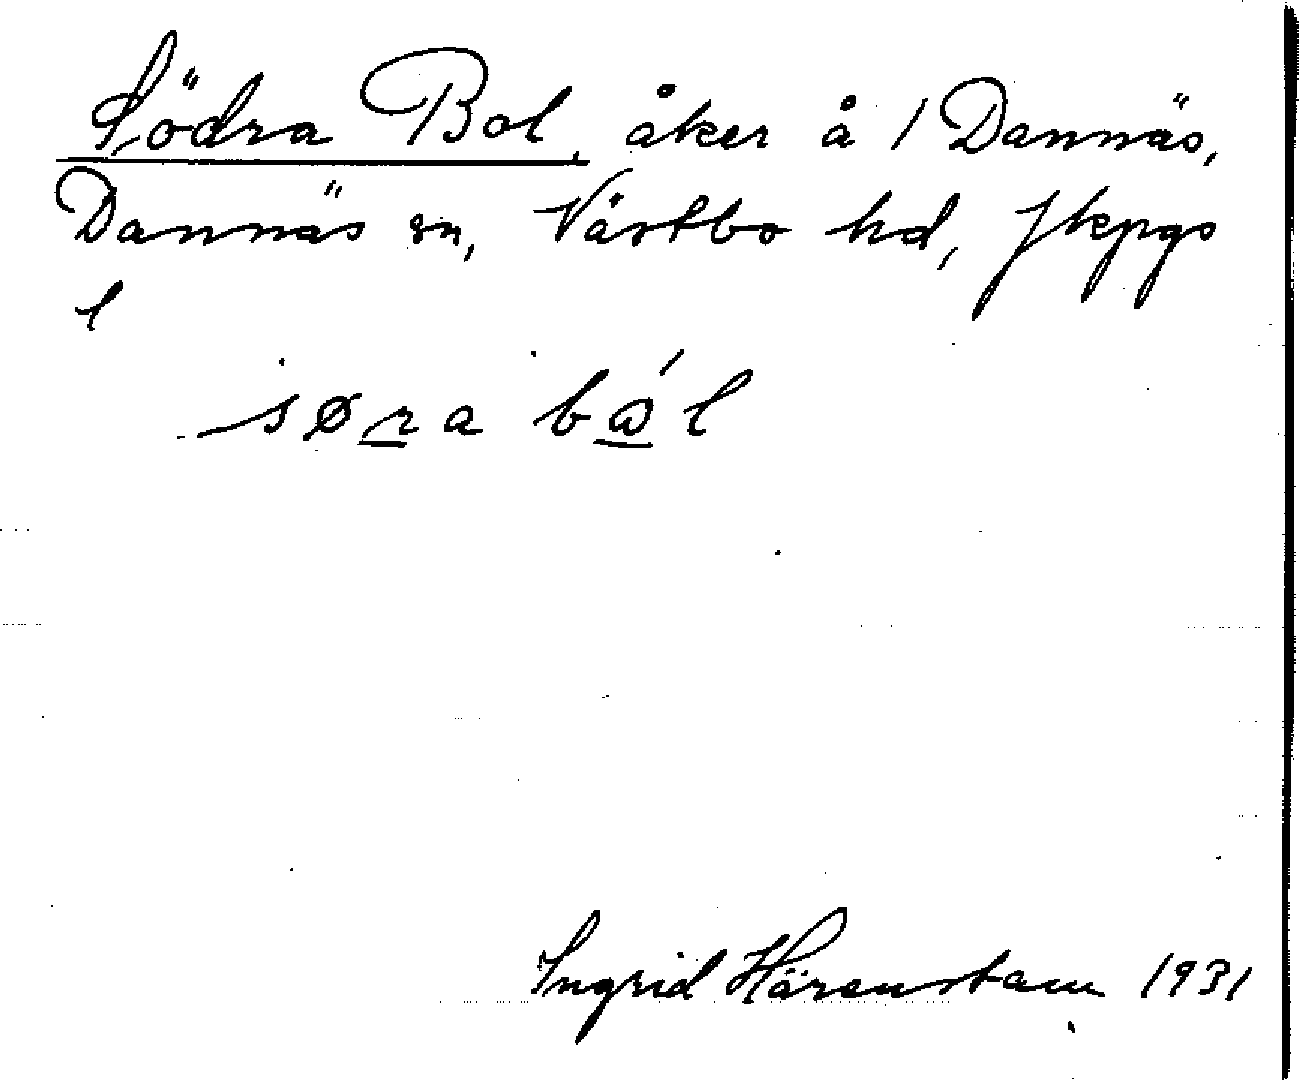 Södra Bol, åker å 1 Dannäs,
Dannäs sn, Västbo hd, Jkpgs
l
søra
Ingrid Härenstam 1931